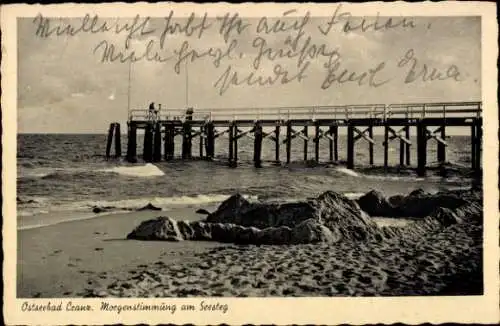 Vielleicht habt Ihr auch Ferien.
Viele herzl. Grüße
sendet Euch Erna
Ostseebad Cranz. Morgenstimmung am Seesteg